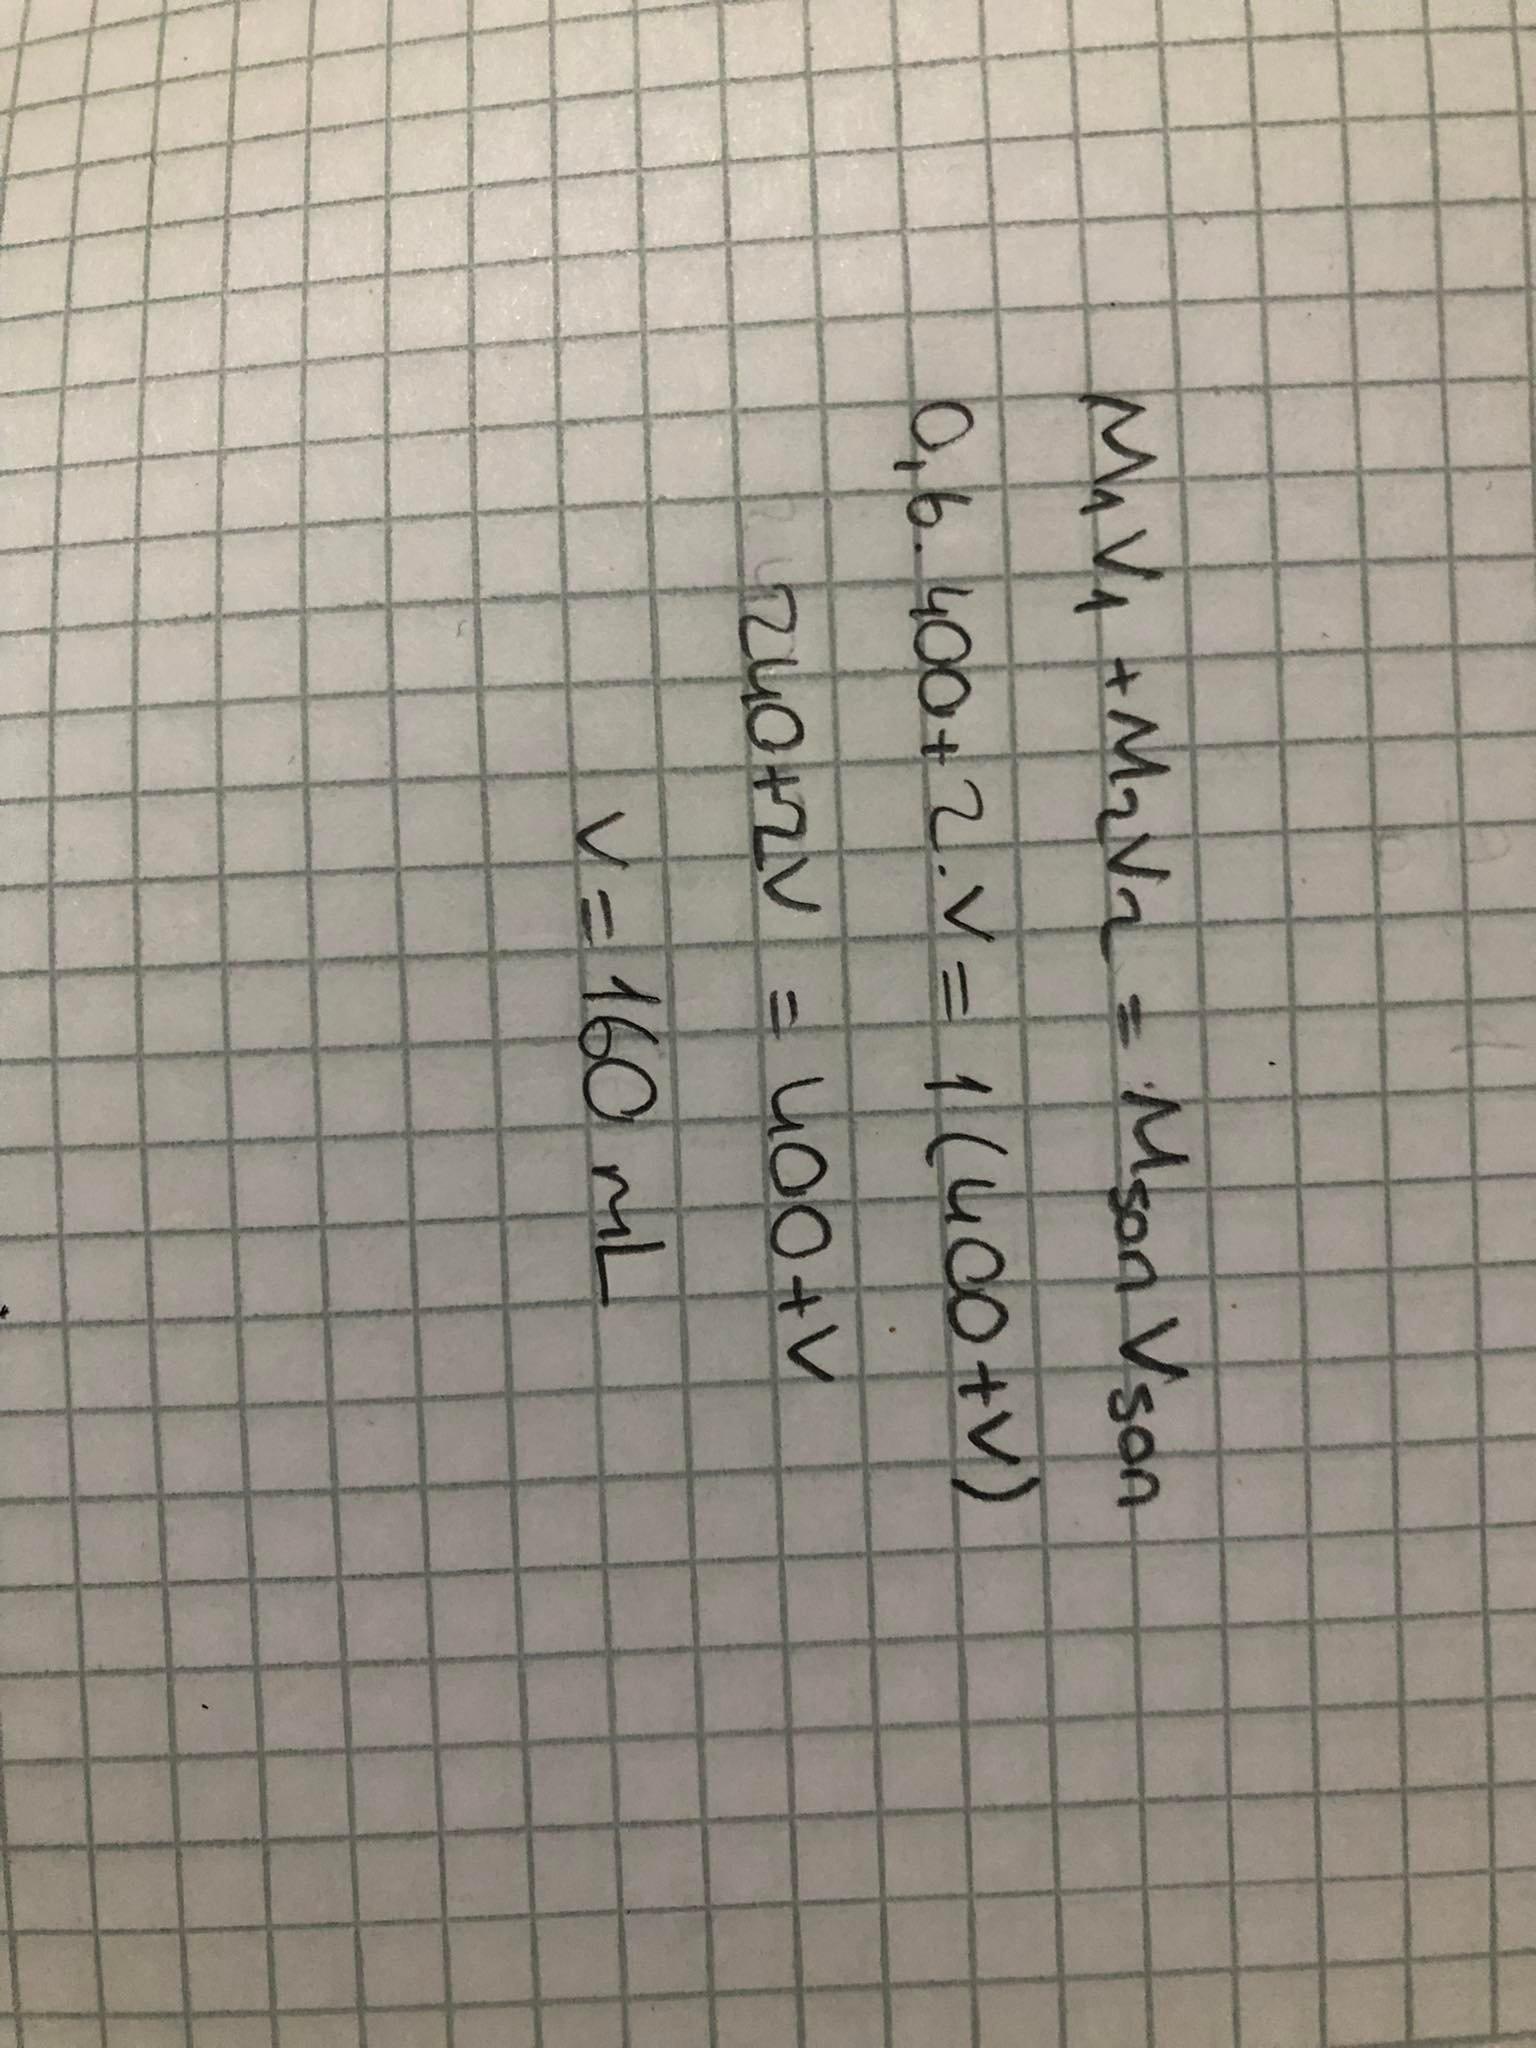 M₁V₁ + M₂V₂ = Mson Vson
0,6 . 400 + 2 . V = 1 (400 + V)
240 + 2V = 400 + V
V = 160 mL